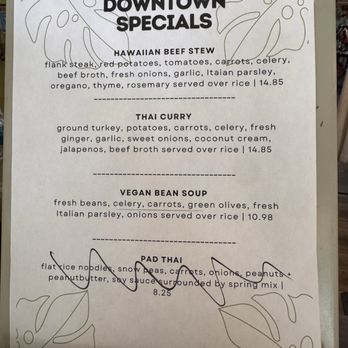 DOWNTOWN
SPECIALS
HAWAIIAN BEEF STEW
flank steak, red potatoes, tomatoes, carrots, celery,
beef broth, fresh onions, garlic, Itaian parsley,
oregano, thyme, rosemary served over rice | 14.85
THAI CURRY
ground turkey, potatoes, carrots, celery, fresh
ginger, garlic, sweet onions, coconut cream,
jalapenos, beef broth served over rice | 14.85
VEGAN BEAN SOUP
fresh beans, celery, carrots, green olives, fresh
Italian parsley, onions served over rice | 10.98
PAD THAI
flat rice noodles, snow peas, carrots, onions, peanuts +
peanutbutter, soy sauce surrounded by spring mix |
8.25